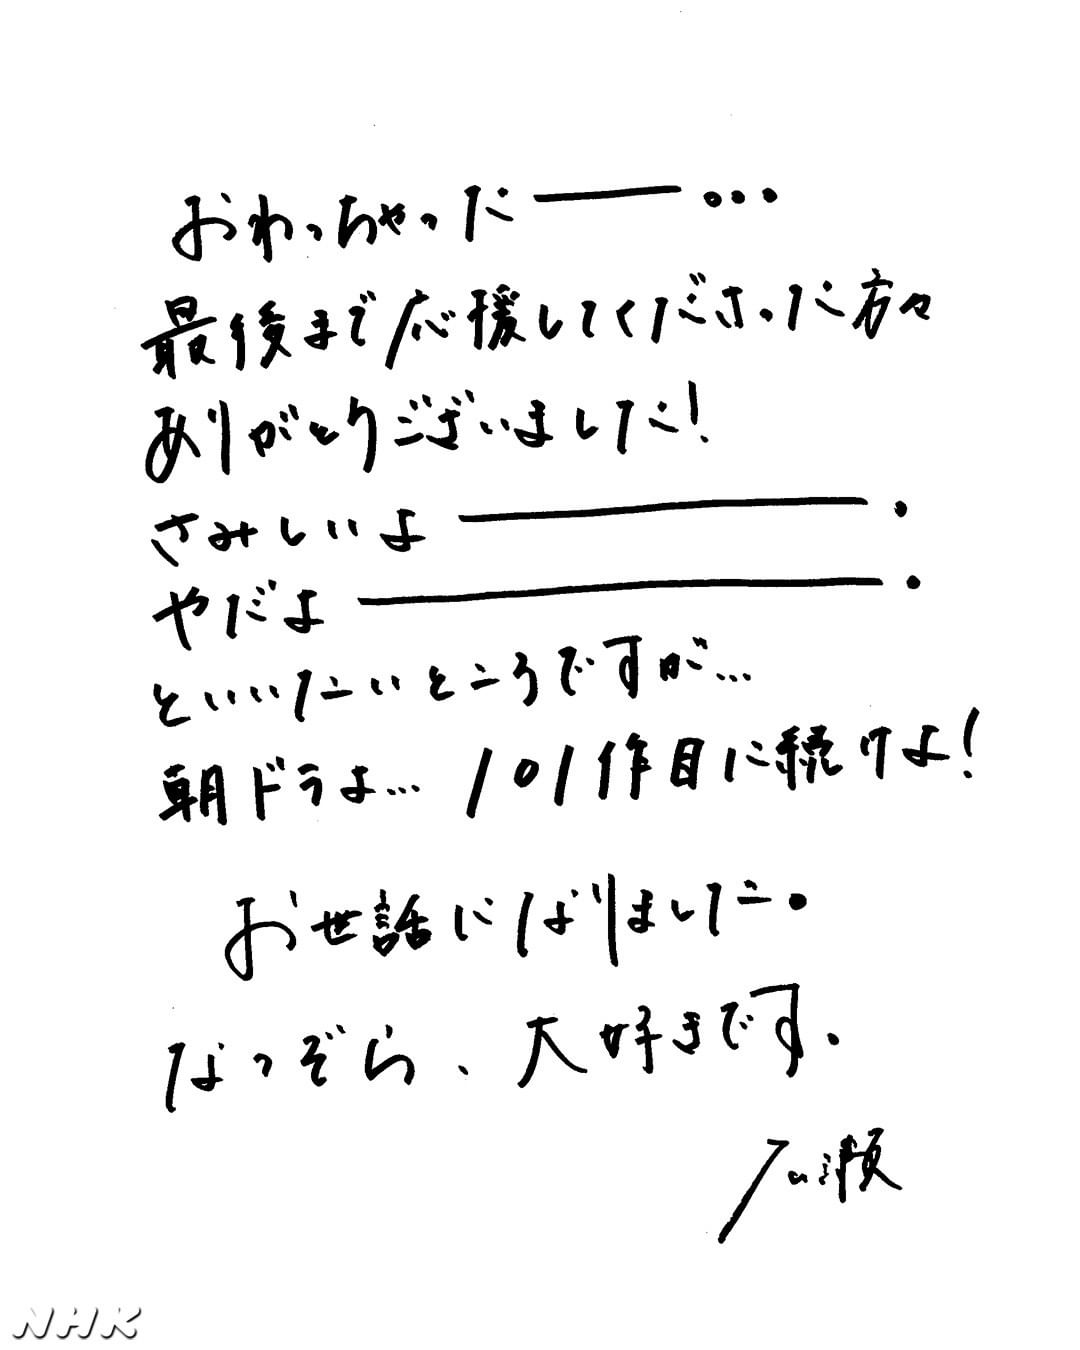 おわっちゃったー…
最後まで応援してくださった方々
ありがとうございました！
さみしいよー.
やだよー.
といいたいところですが…
朝ドラよ… 101作目に続けよ！
お世話になりました.
なつぞら、大好きです.
広瀬
NHK